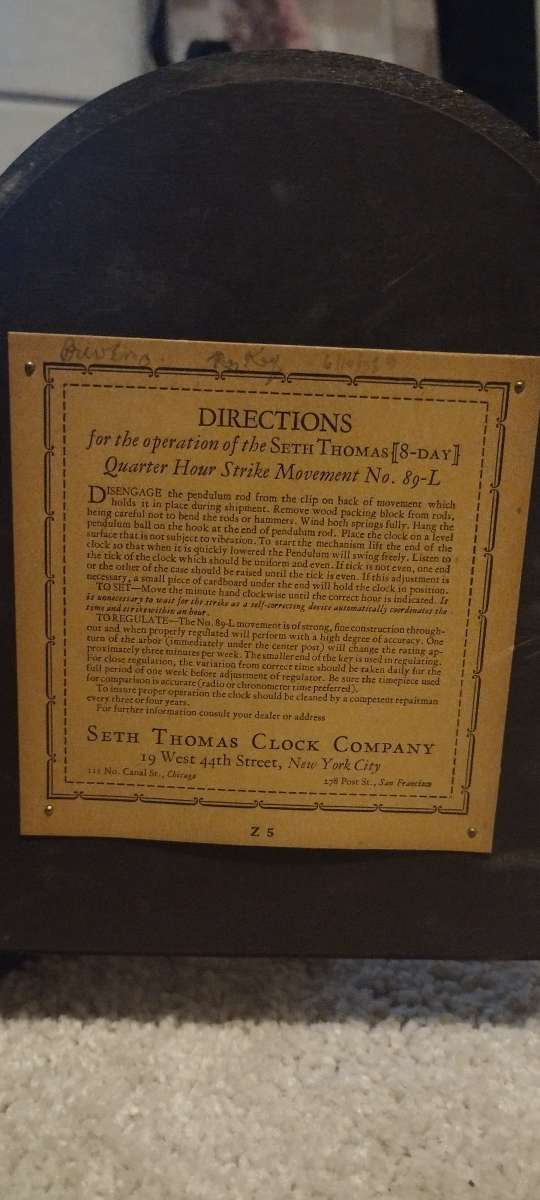 Key
DIRECTIONS
for the operation of the SETH THOMAS [8-DAY]
Quarter Hour Strike Movement No. 89-L
DISENGAGE the pendulum rod from the clip on back of movement which
holds it in place during shipment. Remove wood packing block from rods,
being careful not to bend the rods or hammers. Wind both springs fully. Hang the
pendulum ball on the hook at the end of pendulum rod. Place the clock on a level
surface that is not subject to vibration. To start the mechanism lift the end of the
clock so that when it is quickly lowered the Pendulum will swing freely. Listen to
the tick of the clock which should be uniform and even. If tick is not even, one end
or the other of the case should be raised until the tick is even. If this adjustment is
necessary, a small piece of cardboard under the end will hold the clock in position.
TO SET—Move the minute hand clockwise until the correct hour is indicated. It
is unnecessary to wait for the strike as a self-correcting device automatically coordinates the
time and strike within an hour.
TO REGULATE—The No. 89-L movement is of strong, fine construction through-
out and when properly regulated will perform with a high degree of accuracy. One
turn of the arbor (immediately under the center post) will change the rating ap-
proximately three minutes per week. The smaller end of the key is used in regulating.
For close regulation, the variation from correct time should be taken daily for the
full period of one week before adjustment of regulator. Be sure the timepiece used
for comparison is accurate (radio or chronometer time preferred).
To insure proper operation the clock should be cleaned by a competent repairman
every three or four years.
For further information consult your dealer or address
SETH THOMAS CLOCK COMPANY
19 West 44th Street, New York City
No. Canal St., Chicago
278 Post St., San Francisco
Z 5